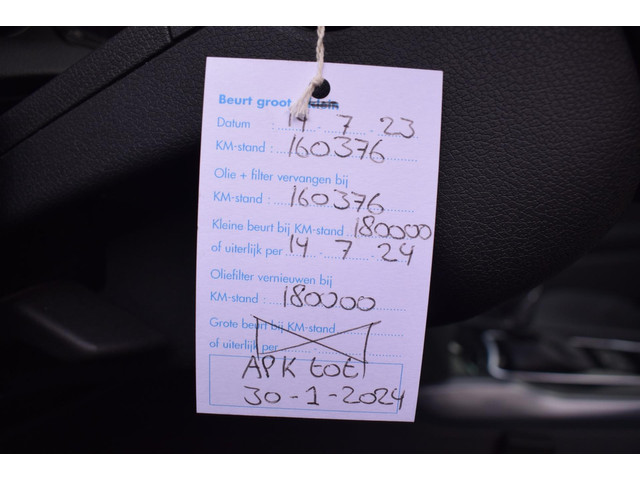 Beurt groot klein
Datum : 14 - 7 - 23
KM-stand : 160376
Olie + filter vervangen bij
KM-stand : 160376
Kleine beurt bij KM-stand 180000
of uiterlijk per 14 - 7 - 24
Oliefilter vernieuwen bij
KM-stand : 180000
Grote beurt bij KM-stand
of uiterlijk per - -
APK tot
30-1-2024